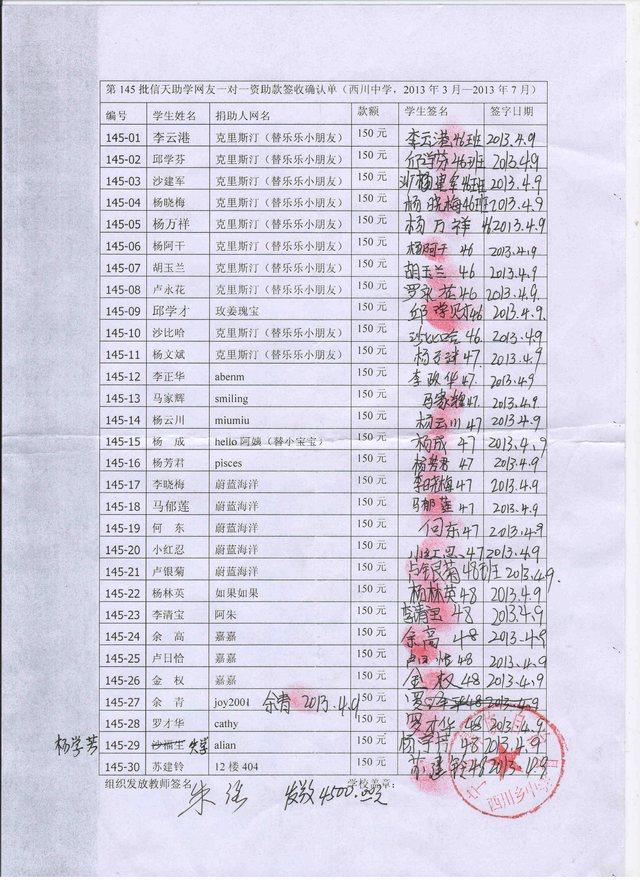 第 145 批信天助学网友一对一资助款签收确认单（西川中学，2013 年 3 月—2013 年 7 月）
编号 学生姓名 捐助人网名 款额 学生签名 签字日期
145-01 李云港 克里斯汀（替乐乐小朋友） 150 元 李云港 46班 2013.4.9
145-02 邱学芬 克里斯汀（替乐乐小朋友） 150 元 邱学芬 46班 2013.4.9
145-03 沙建军 克里斯汀（替乐乐小朋友） 150 元 建军 46班 2013.4.9
145-04 杨晓梅 克里斯汀（替乐乐小朋友） 150 元 杨晓梅 46班 2013.4.9
145-05 杨万祥 克里斯汀（替乐乐小朋友） 150 元 杨万祥 46 2013.4.9
145-06 杨阿干 克里斯汀（替乐乐小朋友） 150 元 杨阿干 46 2013.4.9
145-07 胡玉兰 克里斯汀（替乐乐小朋友） 150 元 胡玉兰 46 2013.4.9
145-08 卢永花 克里斯汀（替乐乐小朋友） 150 元 罗永花 46 2013.4.9
145-09 邱学才 玫姜瑰宝 150 元 邱学 46 2013.4.9
145-10 沙比哈 克里斯汀（替乐乐小朋友） 150 元 沙比哈 46 2013.4.9
145-11 杨文斌 克里斯汀（替乐乐小朋友） 150 元 杨 47 2013.4.9
145-12 李正华 abenm 150 元 李 华 47 2013.4.9
145-13 马家辉 smiling 150 元 马家辉 47 2013.4.9
145-14 杨云川 miumiu 150 元 杨云川 47 2013.4.9
145-15 杨 成 hello 阿姨（替小宝宝） 150 元 杨成 47 2013.4.9
145-16 杨芳君 pisces 150 元 杨芳君 47 2013.4.9
145-17 李晓梅 蔚蓝海洋 150 元 李晓梅 47 2013.4.9
145-18 马郁莲 蔚蓝海洋 150 元 马郁莲 47 2013.4.9
145-19 何 东 蔚蓝海洋 150 元 何东 47 2013.4.9
145-20 小红忍 蔚蓝海洋 150 元 小红忍 47 2013.4.9
145-21 卢银菊 蔚蓝海洋 150 元 卢银菊 48班 2013.4.9
145-22 杨林英 如果如果 150 元 杨林英 48 2013.4.9
145-23 李清宝 阿朱 150 元 李清宝 48 2013.4.9
145-24 余 高 嘉嘉 150 元 余高 48 2013.4.9
145-25 卢日恰 嘉嘉 150 元 卢日恰 48 2013.4.9
145-26 金 权 嘉嘉 150 元 金权 48 2013.4.9
145-27 余 青 joy2001 余青 2013.4.9 150 元 罗 48 2013.4.9
145-28 罗才华 cathy 150 元 罗才华 48 2013.4.9
杨学芳 145-29 沙福生 失学 alian 150 元 杨学芳 48 2013.4.9
145-30 苏建铃 12 楼 404 150 元 苏建铃 48 2013.4.9
组织发放教师签名： 学校盖章：
朱 发放 4500.00元
西川乡中